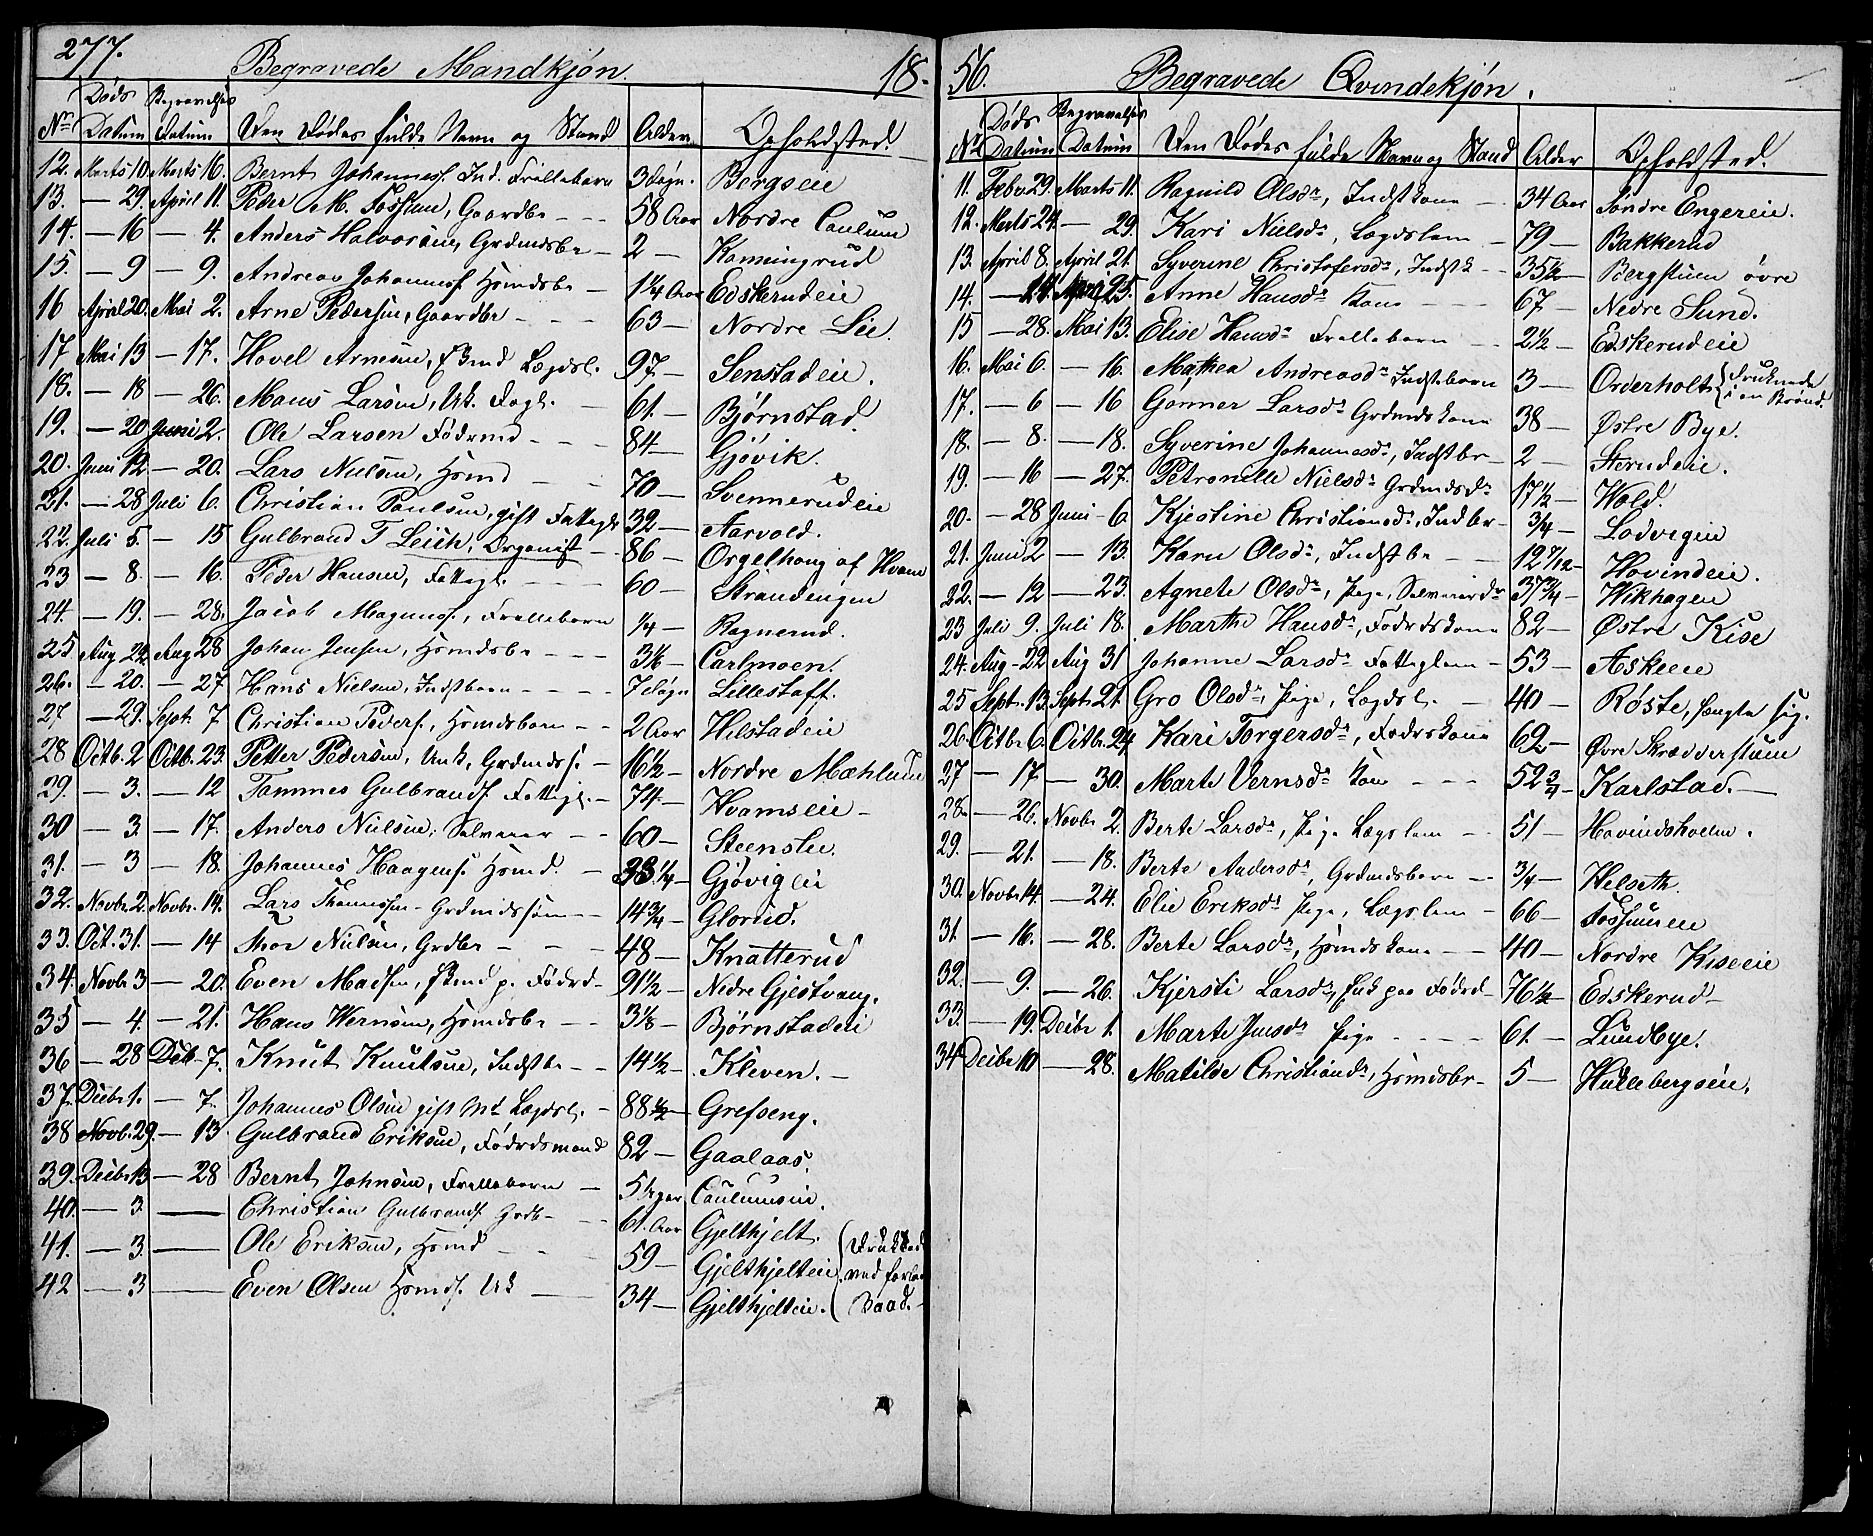 277.
Begravede Mandkjøn. 18-
Nr Døds Datum Begravelses Datum Den Dødes fulde Navn og Stand Alder Opholdsted.
12. Marts 10. Marts 16. Bernt Johannesf. Ind. Frillebarn 3 Døgn. Bergseie
13. — 29. April 11. Peder M. Fossum, Gaardbr - - - 58 Aar Nordre Caulum
14. — 16 — 4. Anders Halvorsen, Grdmdsbr - 2 — Kamingrud
15. — 9 — 9. Andreas Johannesf. Hsmdsbr — 1¼ Aar Edskerudeie
16 April 20. Mai 2. Arne Pedersen, Gaardbr - - - 63 — Nordre Lie.
17 Mai 13 — 17. Hovel Arnesen, Lægdsl. 97 — Senstadeie.
18. — 18 — 26. Mons Larsen, Uk. Fogt. — 61. — Bjørnstad.
19. — 20 Juni 2. Ole Larsen Fødrmd - - - 84 — Gjøvik.
20. Juni 12 — 20. Lars Nielsen, Hsmd - - 70 — Svennerudeie
21. — 28 Juli 6. Christian Paulsen, gift Fattigl. 32 — Aarvold.
22. Juli 5. — 15 Gulbrand T Leich, Organist — 86 — Orgelhaug af Hvam
23 — 8. — 16. Peder Hansen, Fattigl. - - - 60 — Strandengen
24. — 19. — 28. Jacob Magnusf., Frillebarn ¼ — Ragnerud.
25. Aug 24. Aug 28 Johan Jensen, Hsmdsbr - - - 3⅙ — Carlmoen.
26. — 20. — 27 Hans Nielsen, Indstbarn - - - - 7 Døgn Lillestaff.
27 — 29. Septr 7 Christian Pedersf., Hsmdsbarn - - 2 Aar Hilstadeie
28 Octb. 2 Octb. 23. Petter Pedersen, Unk, Grdmdsf. — 16½ — Nordre Mæhlum
29. — 3. — 12 Tommes Gulbrandsf. Fattigl. — 74. — Hvamseie —
30 — 3. — 17. Anders Nielsen, Selveier - - 60 — Steenslie.
31. — 3 — 18. Johannes Haagensf. Hsmd. — 33¼ — Gjøvigeie
32. Novbr. 2. Novbr. 14. Lars Thomessen - Grdmdssøn - - 14¾ — Glorud.
33. Oct. 31. — 14 Thor Nielsen, Grdbr - - - 48 — Knatterud
34. Novbr 3 — 20. Even Madsen, p. Fødrd - 91½ — Nedre Gjestvang.
35 — 4. — 21. Hans Wernsen, Hsmdsbr - - 3⅙ — Bjørnstadeie
36 — 28 Decb. 7. Knut Knutsen, Indstbr - - 14½ — Kleven. —
37. Decbr. 1. — 7. Johannes Olsen gift Md Lægdsl. — 88½ — Grefseng.
38 Novb. 29. — 13 Gulbrand Eriksen, Fødrdsmand 82 — Gaalaas.
39. Decbr 13 — 28 Bernt Johnsen, Frillebarn — 5 Uger Caulumseie.
40. — 3. — Christian Gulbrandsf. Grdb - - - 61. Aar Gjelthjelt.
41. — 3. — Ole Eriksen, Hsmd - - - 59 — Gjelthjelteie
42 — 3 — Even Olsen Hsmdsf. Uk — 34 — Gjelthjelteie.
(Druknede ved Baad. -
56. Begravede Qvindekjøn.
Nr Døds Datum Begravelses Datum Den Dødes fulde Navn og Stand Alder Opholdsted.
11. Febr 29. Marts 11. Ragnild Olsdr, Indstkone - 34 Aar Søndre Engereie.
12. Marts 24. — 29. Kari Nielsdr, Lægdslem - 79 — Bakkerud
13. April 8. April 21. Syverine Christofersdr, Indstk - - 35½ — Bergstuen øvre
14. — April 25. Anne Hansdr Kone - - - 67 — Nedre Sund.
15 — 28. Mai 13. Elise Hansdr Frillebarn - - 2½ — Edskerudeie
16. Mai 6. — 16. Mathea Andreasdr Indstbarn 3 — Orderholt (Druknede i en Brønd.
17. — 6 — 16 Gonner Larsdr Grdmdskone 38 — Østre Bye.
18. — 8. — 18. Syverine Johannesdr, Indstbr - 2 — Sterudeie.
19. — 16 — 27. Petronelle Nielsdr Grdmdsdr 17½ — Wold.
20. — 28 Juni - 6. Kjestine Christiansdr, Indbr - ¾ — Lodvigeie
21. Juni 2 — 13. Karn Olsdr, Indstbr — 12 7/12 — Hovindeie.
22. — 12 — 23. Agnete Olsdr, Pige, Selveierdr 37¾ — Wikhagen
23 Juli 9. Juli 18. Marthe Hansdr, Fødrdskone 82 — Østre Kise
24. Aug - 22 Aug 31 Johanne Larsdr Fattiglem - 53 — Askeeie
25 Septr. 13. Septr. 21. Gro Olsdr, Pige, Lægdsl. — 40 — Røste, hængte sig.
26. Octbr 6. Octbr. 24 Kari Torgersdr, Fødrskone 62 — Øvre Skrædderstuen
27 — 17. — 30. Marte Vernsdr Kone - - - 52¾ — Karlstad. —
28. — 26. Novbr 2. Berte Larsdr, Pige Lægslem - - 51 — Hovindsholm.
29. — 21. — 18. Berte Andersdr, Grdmdsbarn - - ¾ — Helseth.
30. Novbr 14. — 24. Elie Eriksdr Pige, Lægslem - 66 — Fossumeie
31. — 16. — 28. Berte Larsdr, Hsmdskone - - 40 — Nordre Kiseeie
32. — 9. — 26. Kjersti Larsdr, Enk paa Fødrd - 76½ — Edskerud —
33. — 19. Decbr 1. Marte Jensdr Pige - - - - 61. — Lundbye.
34 Decbr 10 — 28. Matilde Christiandr, Hsmdsbr - 5 — Hullebergseie.